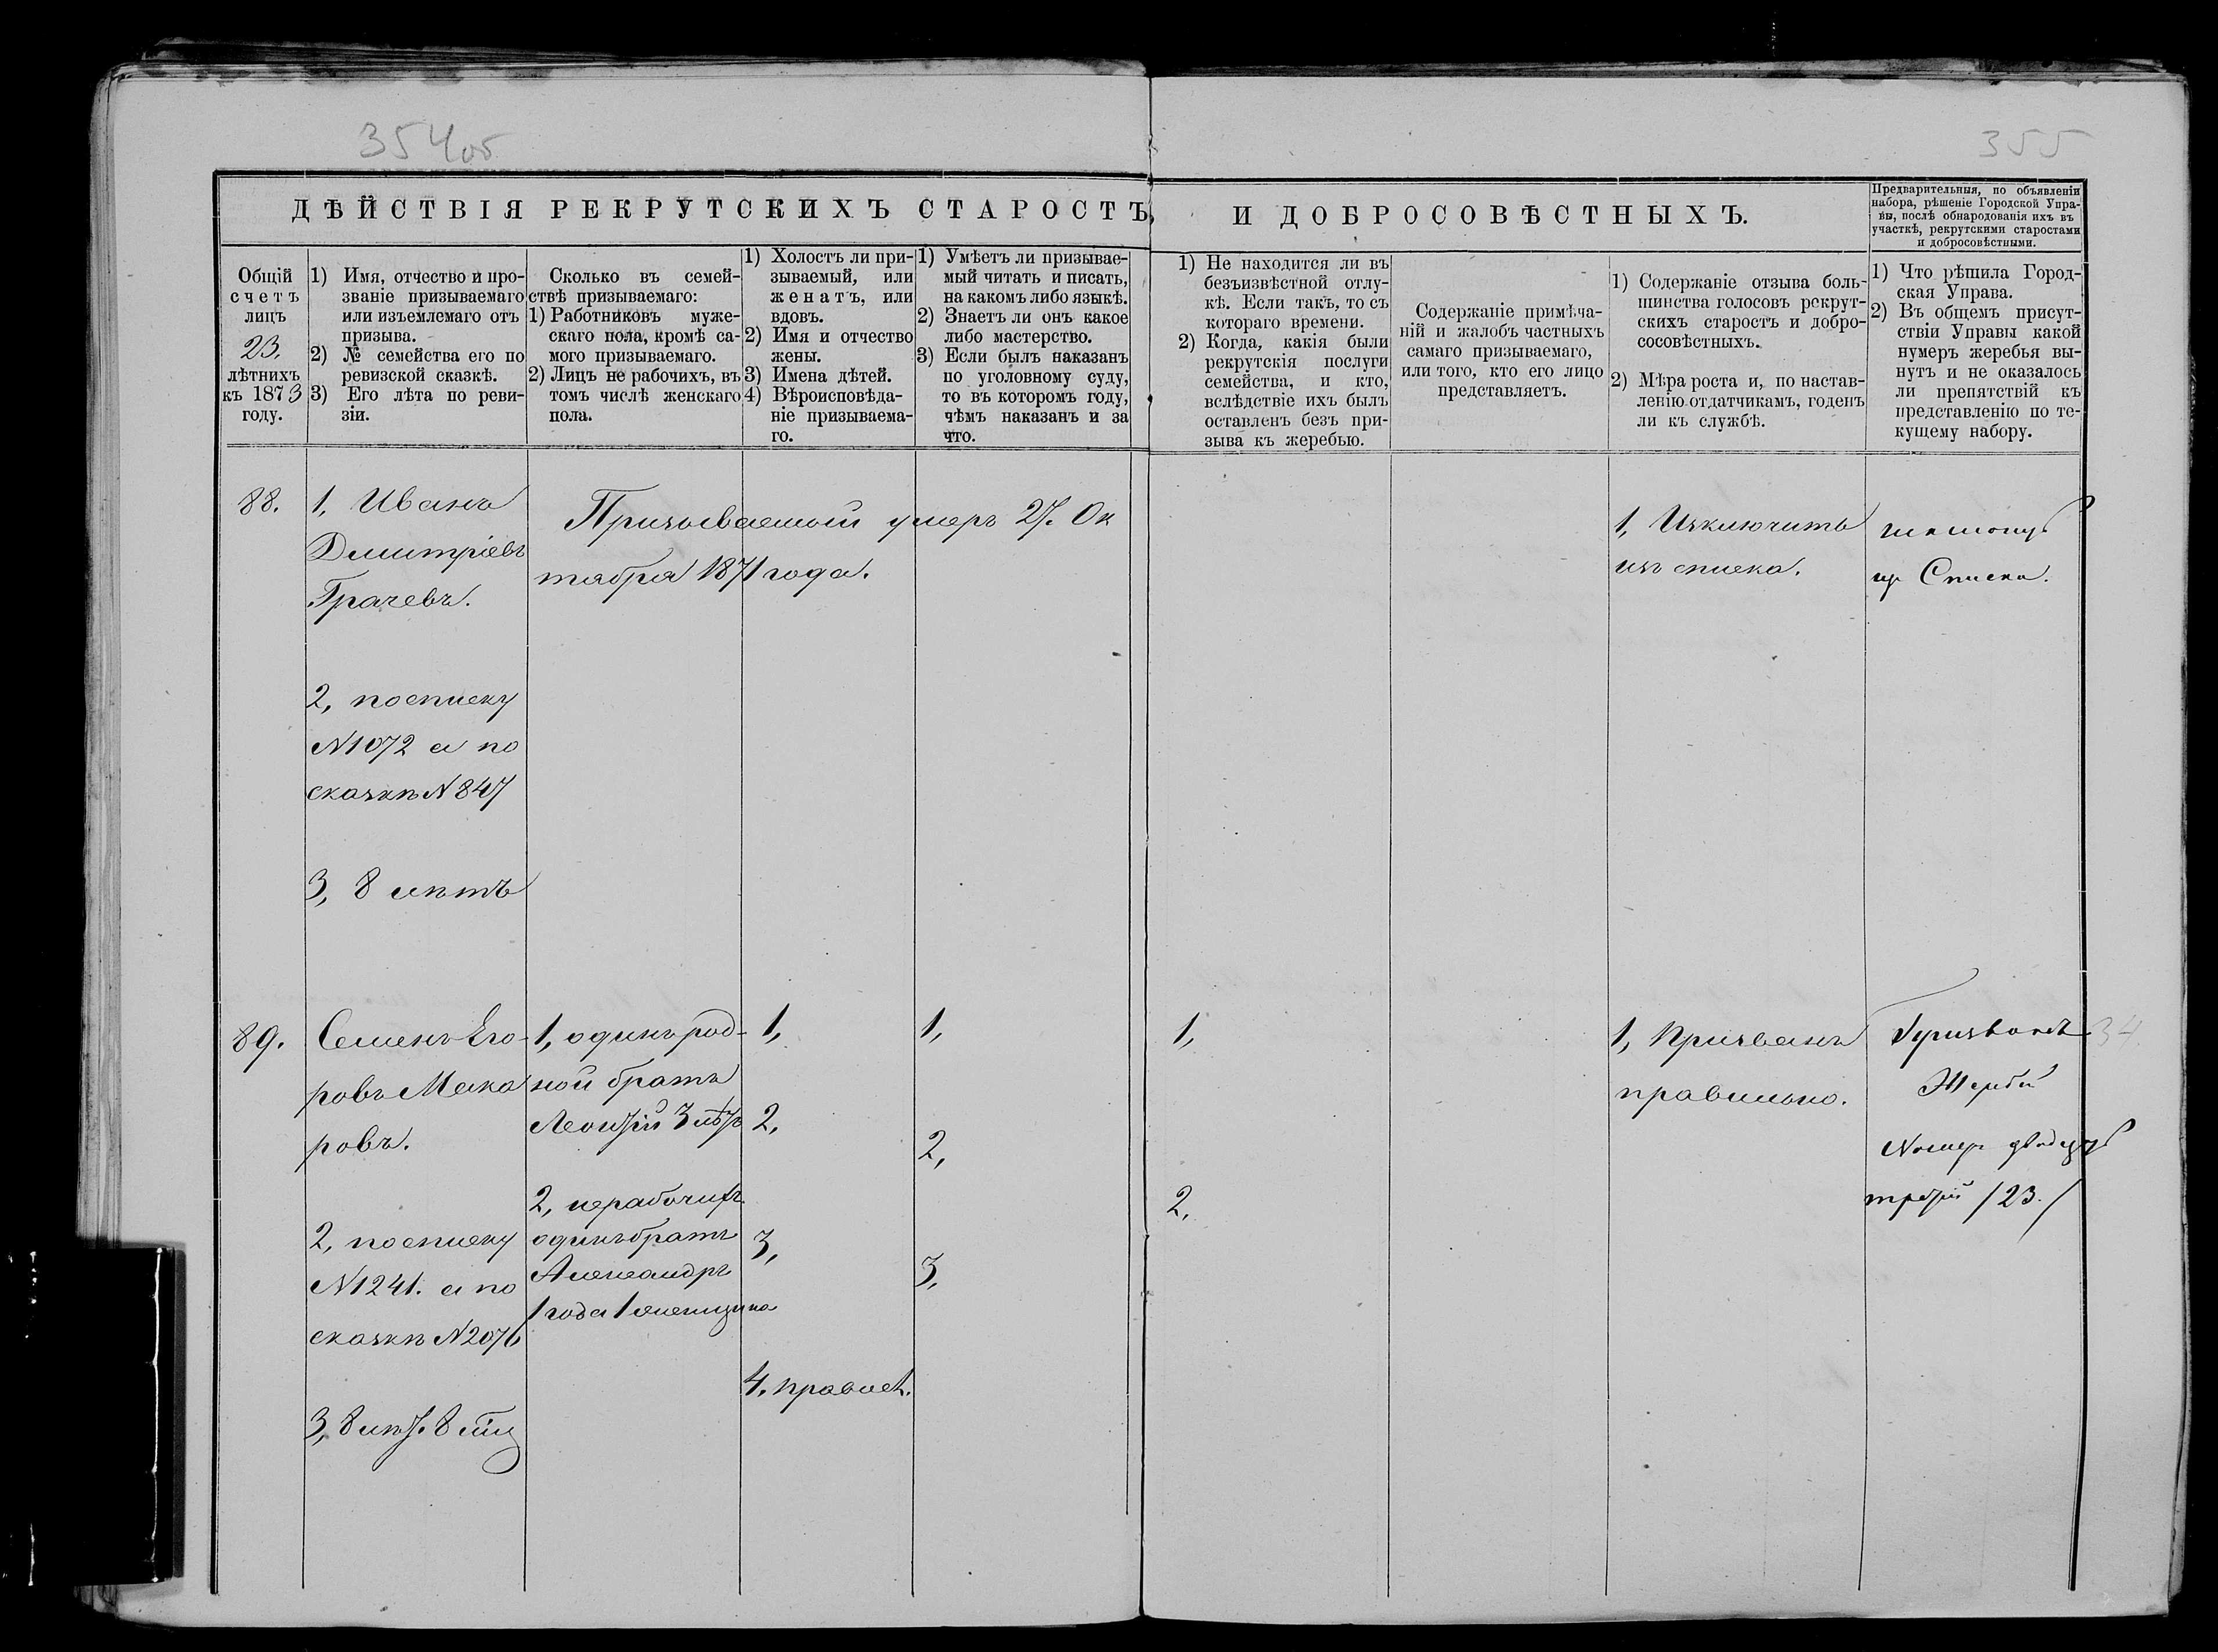 354об
355
ДѢЙСТВІЯ РЕКРУТСКИХЪ СТАРОСТЪ
И ДОБРОСОВѢСТНЫХЪ.
Предварительныя, по объявленіи
набора, рѣшеніе Городской Упра-
вы, послѣ обнародованія ихъ въ
участкѣ, рекрутскими старостами
и добросовѣстными.
Общій
счетъ
лицъ
23.
лѣтнихъ
къ 1873
году.
1) Имя, отчество и про-
званіе призываемаго
или изъемлемаго отъ
призыва.
2) № семейства его по
ревизской сказкѣ.
3) Его лѣта по реви-
зіи.
Сколько въ семей-
ствѣ призываемаго:
1) Работниковъ муже-
скаго пола, кромѣ са-
мого призываемаго.
2) Лицъ не рабочихъ, въ
томъ числѣ женскаго
пола.
1) Холостъ ли при-
зываемый, или
женатъ, или
вдовъ.
2) Имя и отчество
жены.
3) Имена дѣтей.
4) Вѣроисповѣда-
ніе призываема-
го.
1) Умѣетъ ли призывае-
мый читать и писать,
на какомъ либо языкѣ.
2) Знаетъ ли онъ какое
либо мастерство.
3) Если былъ наказанъ
по уголовному суду,
то въ которомъ году,
чѣмъ наказанъ и за
что.
1) Не находится ли въ
безъизвѣстной отлу-
кѣ. Если такъ, то съ
котораго времени.
2) Когда, какія были
рекрутскія послуги
семейства, и кто,
вслѣдствіе ихъ былъ
оставленъ безъ при-
зыва къ жеребью.
Содержаніе примѣча-
ній и жалобъ частныхъ
самаго призываемаго,
или того, кто его лицо
представляетъ.
1) Содержаніе отзыва боль-
шинства голосовъ рекрут-
скихъ старостъ и добро-
сосовѣстныхъ.
2) Мѣра роста и, по настав-
ленію отдатчикамъ, годенъ
ли къ службѣ.
1) Что рѣшила Город-
ская Управа.
2) Въ общемъ присут-
ствіи Управы какой
нумеръ жеребья вы-
нутъ и не оказалось
ли препятствій къ
представленію по те-
кущему набору.
88.
1, Иванъ
Дмитріевъ
Грачевъ.
2, по списку
N1072 а по
сказкѣ N847
3, 8 лѣтъ
Призываемый умеръ 27. Ок
тября 1871 года.
1, Изключить
изъ списка.
Списка.
89.
Семенъ Его-
ровъ Мака
ровъ.
2, по списку
N1241. а по
сказкѣ N2076
3, 8 лѣт. 8 мѣц
1, одинъ род-
ной братъ
3 лѣтъ
2, нерабочихъ
одинъ братъ
Александръ
1 года 1 женщина
1,
2,
3,
4, правосл.
1,
2,
3,
1,
2,
1, Призванъ
правильно.
Призванъ
Жребій
Номеръ двадцать
третій /23./
34.